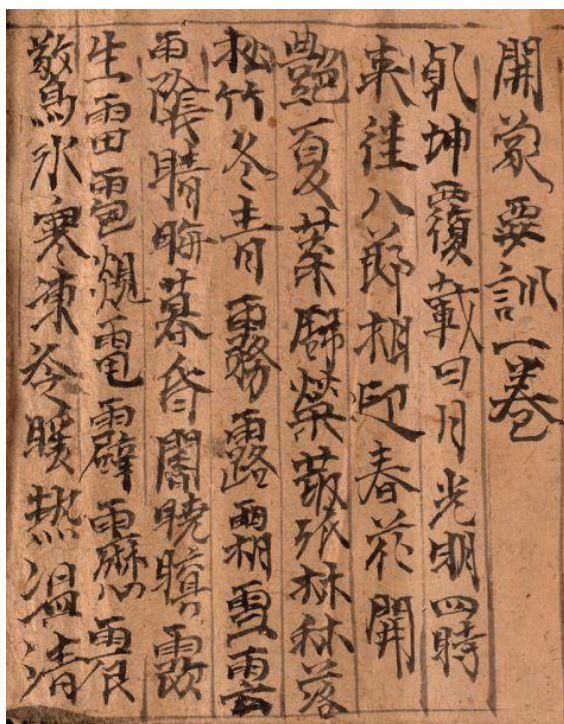 開蒙要訓一卷
乹坤覆載日月光明四時
来往八節相迎春花開
艶夏葉舒榮藂林秋落
松竹冬青霧露霜雪雲
雨陰晴晦暮昏闇曉暝霞
生雷雹熀電霹靂震
驚氷寒凍冷暖熱温清